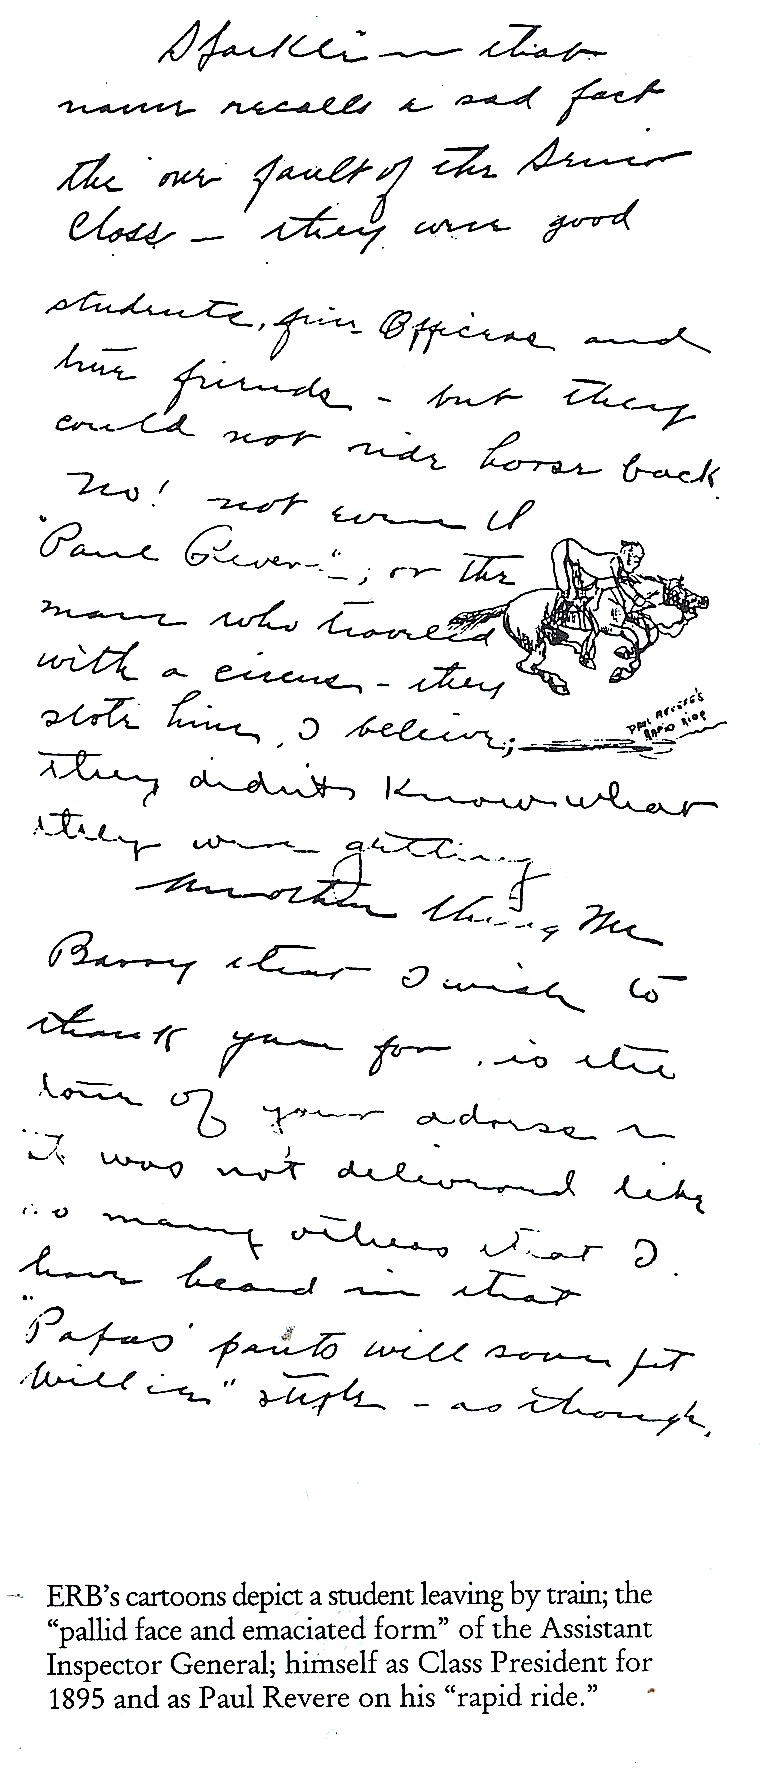 that
name recalls a sad fact
the one fault of the Senior
Class — they were good
students, fine Officers and
true friends - but they
could not ride horse back
No! not even
"Paul Revere"; or the
man who traveled
with a circus - they
stole him, I believe;
PAUL REVERE'S
RAPID RIDE
they didn't know what
they were getting
Another thing Mr
Barry that I wish to
thank you for, is the
tone of your address
it was not delivered like
so many others that I
have heard in that
"Papas' pants will soon fit
Willie" style - as though,
ERB's cartoons depict a student leaving by train; the
"pallid face and emaciated form" of the Assistant
Inspector General; himself as Class President for
1895 and as Paul Revere on his "rapid ride."